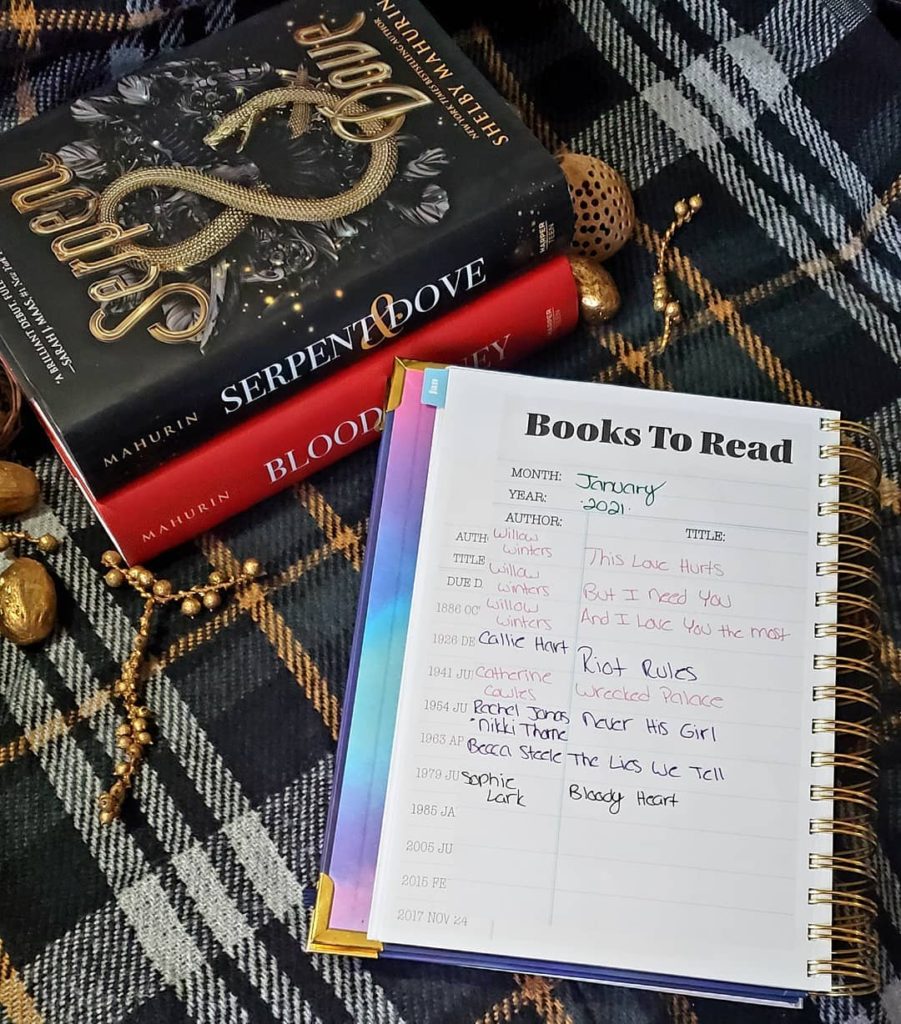 Dove
NEW YORK TIMES BESTSELLING AUTHOR
SHELBY MAHURIN
Serpent
"A BRILLIANT DEBUT FULL
SARAH J. MAAS, #1 New York T
MAHURIN SERPENT & DOVE HARPER TEEN
MAHURIN BLOOD NEY HARPER TEEN
Jan
Books To Read
MONTH: January
YEAR: 2021.
AUTHOR: TITLE:
AUTH Willow Winters This Love Hurts
TITLE Willow Winters But I need You
DUE D Willow Winters And I Love You the most
1886 OC
1926 DE Callie Hart Riot Rules
1941 JU Catherine Cowles Wrecked Palace
1954 JU Rachel Jonas Never His Girl
· Nikki Thorne
1963 AP Becca Steele The Lies We Tell
1979 JU Sophie Lark Bloody Heart
1985 JA
2005 JU
2015 FE
2017 NOV 24